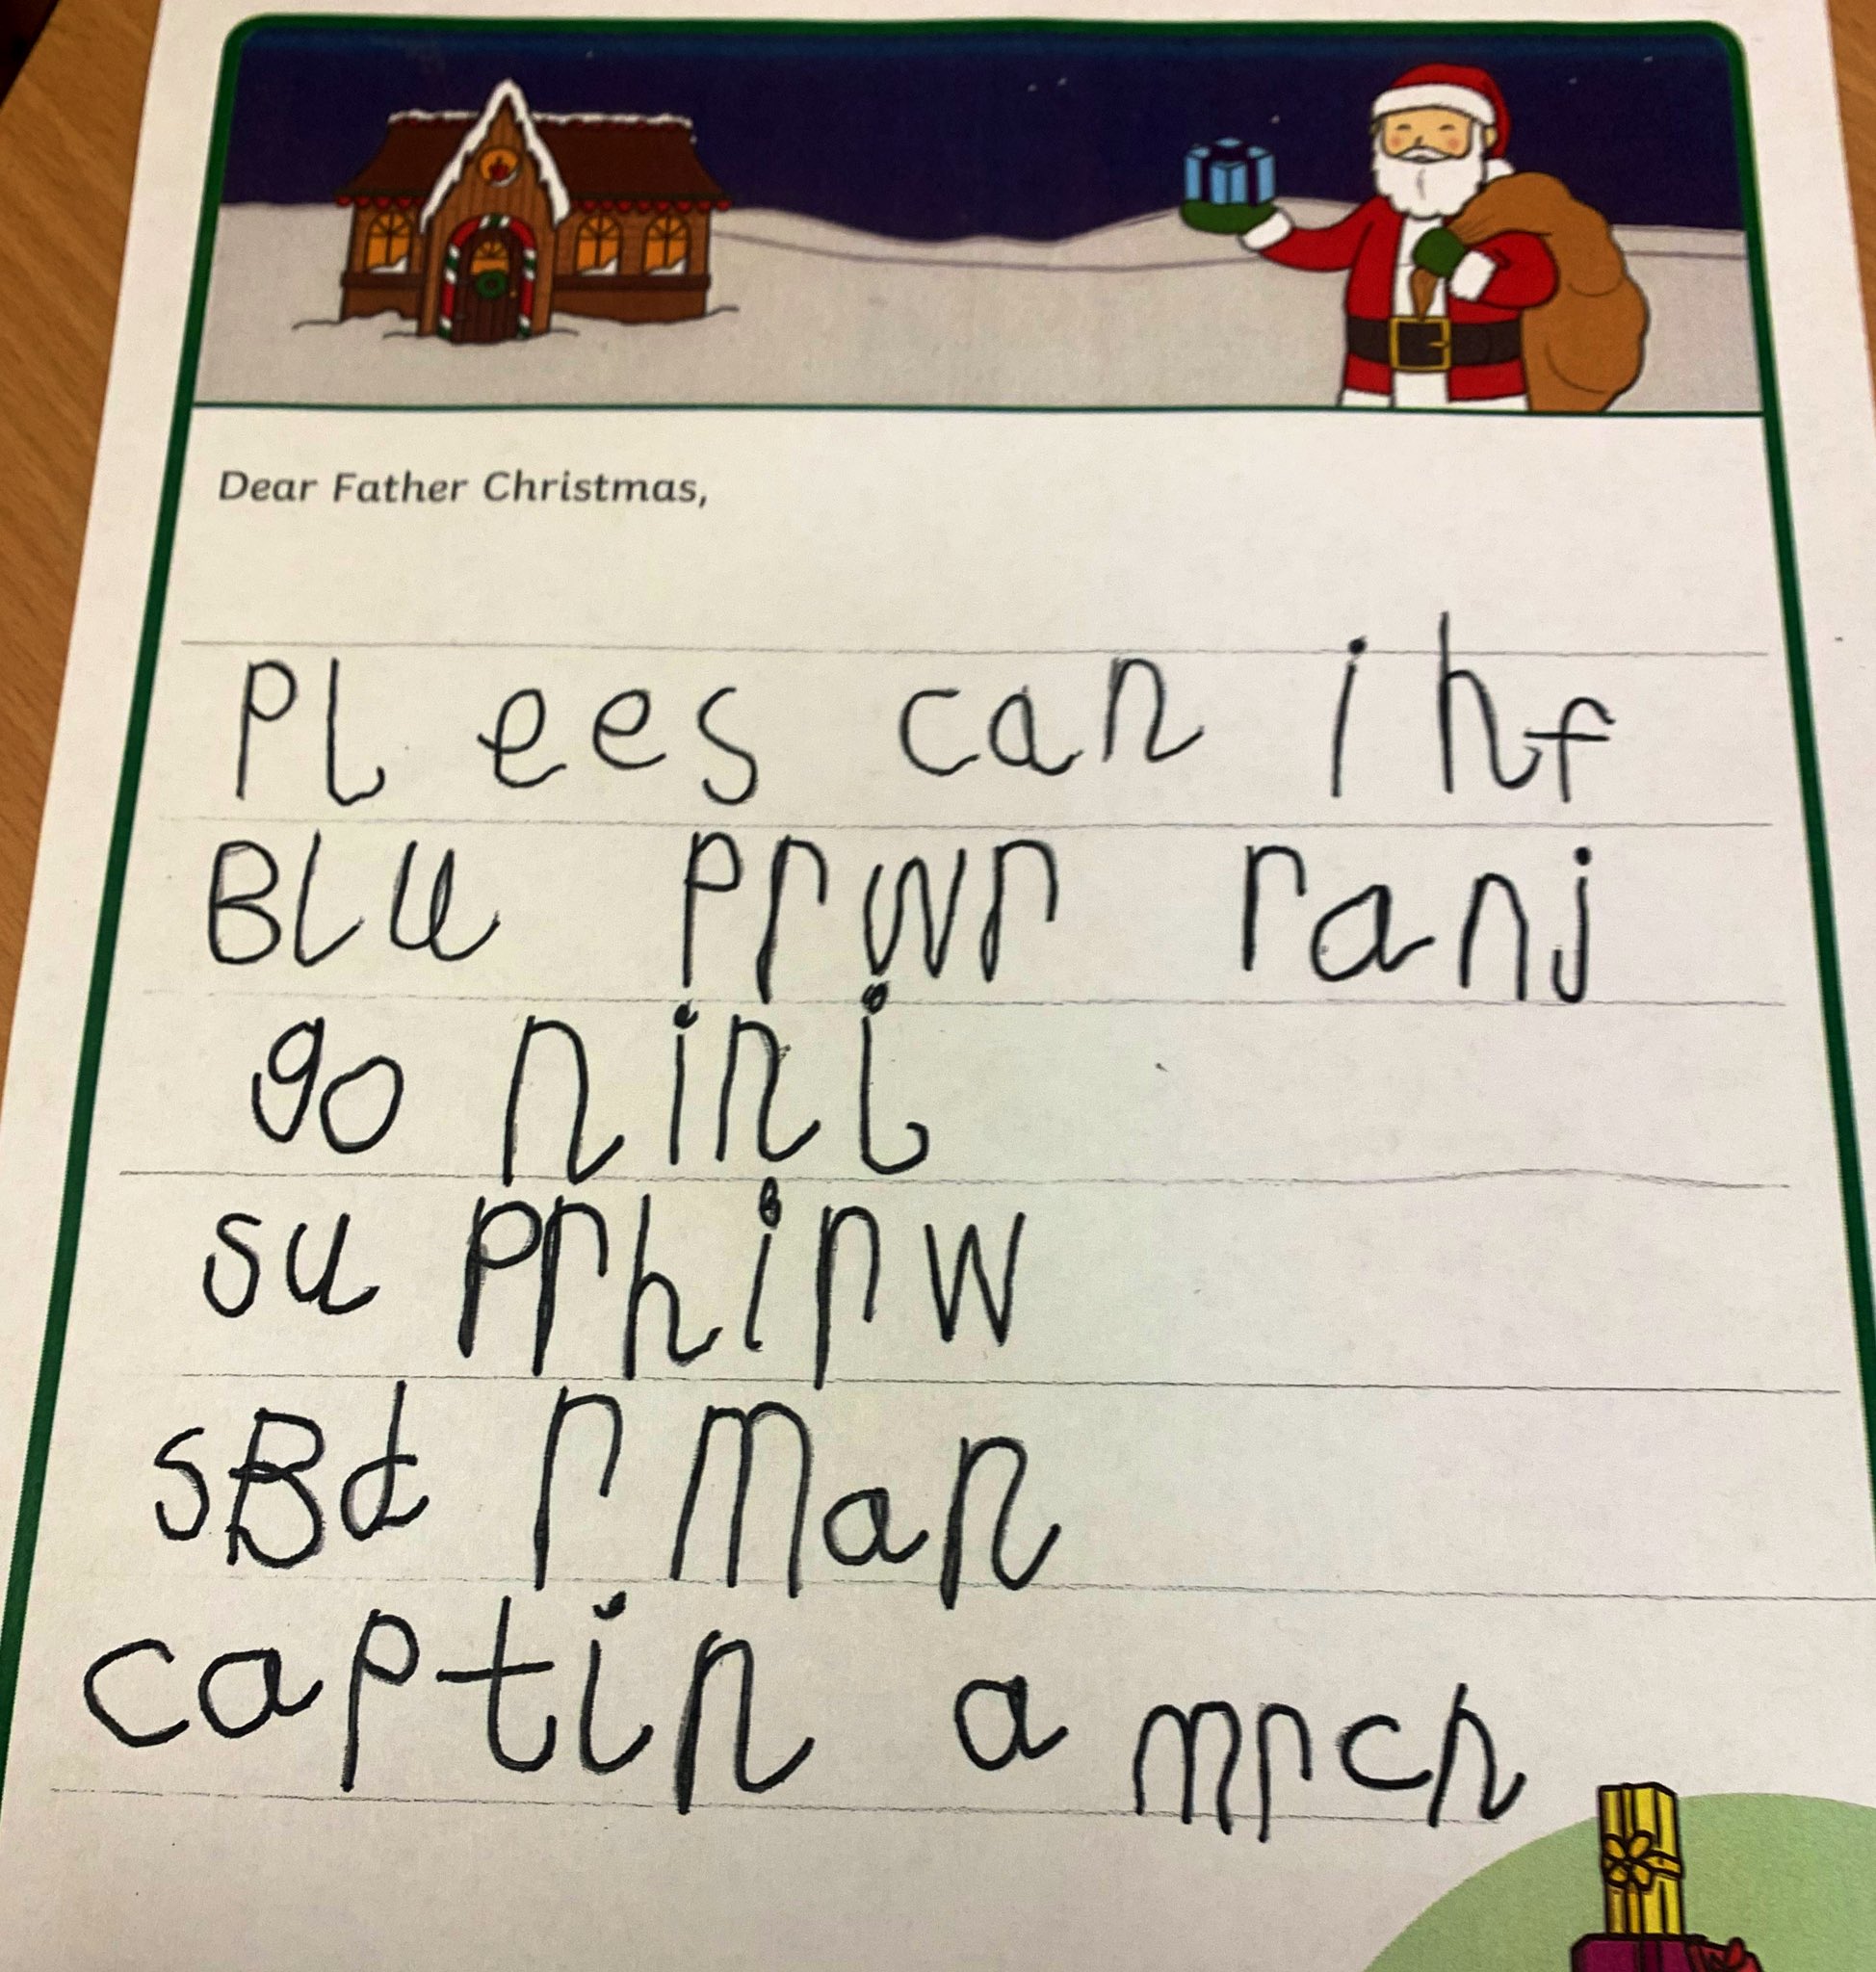 Dear Father Christmas,
Pl ees can i hf
BLu prwr ranj
go nini
su prhirw
sBd r Man
captin a mrcn